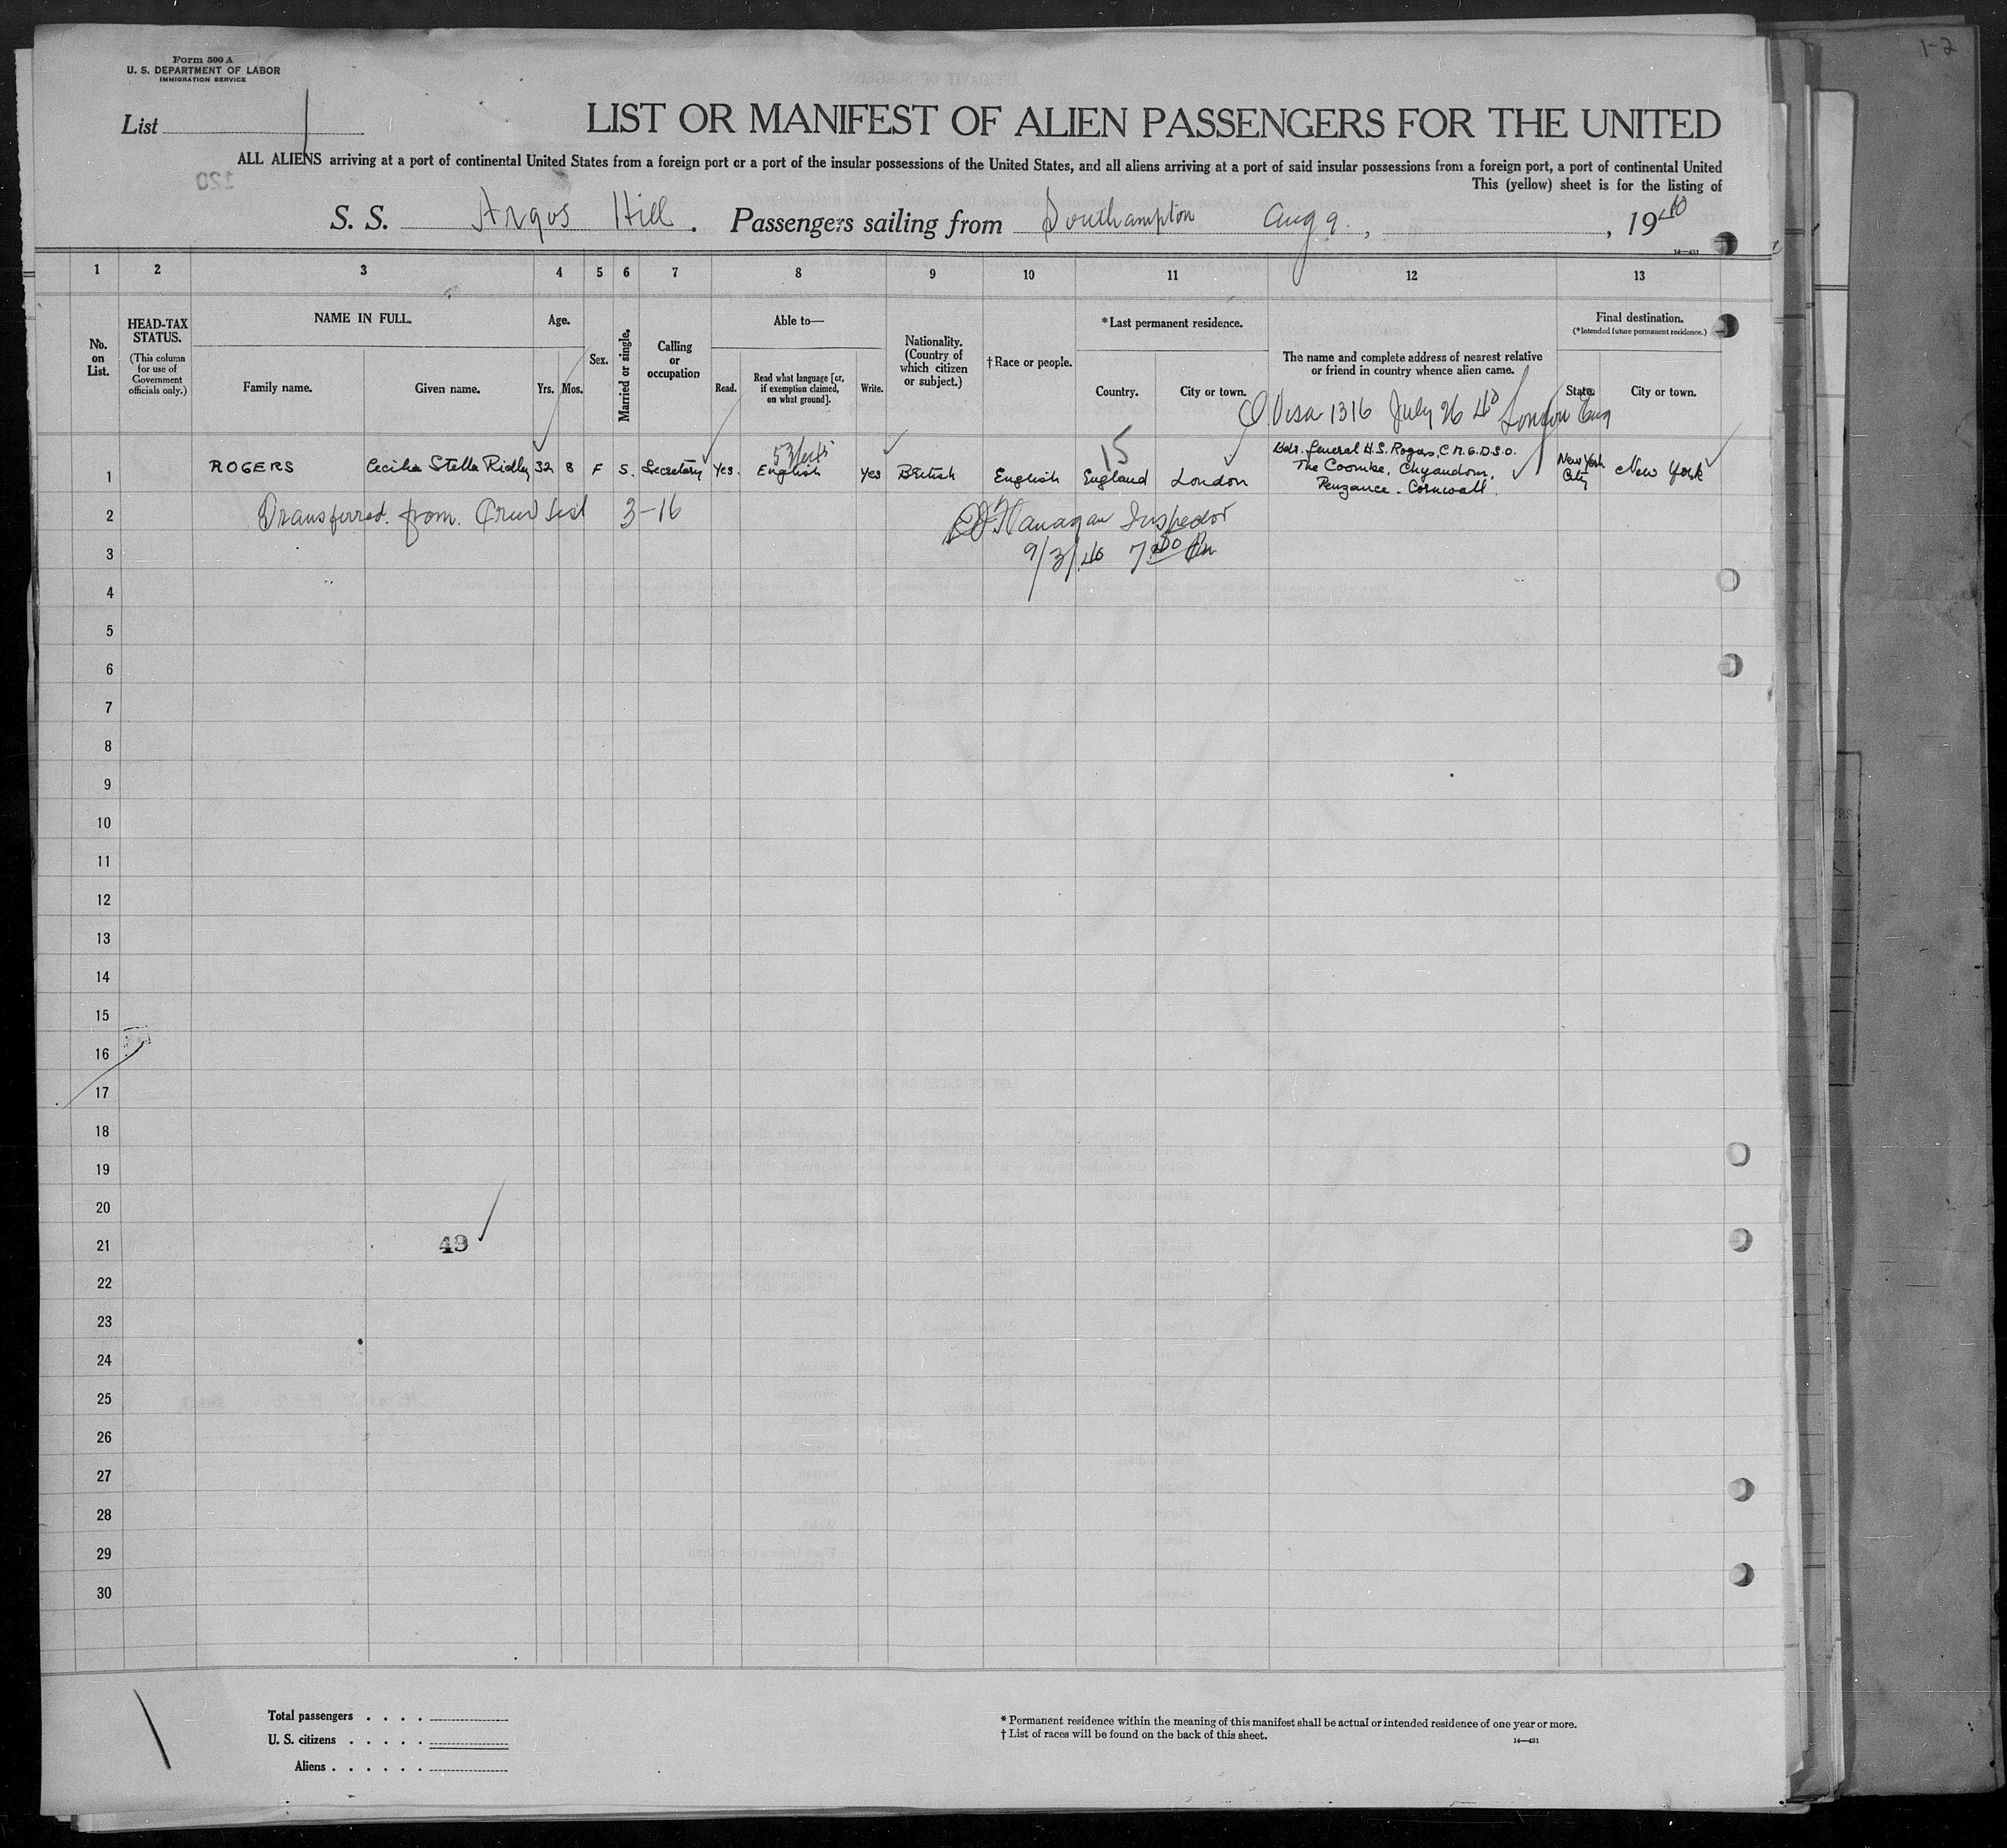 1-2
Form 500 A
U. S. DEPARTMENT OF LABOR
IMMIGRATION SERVICE
List 1
LIST OR MANIFEST OF ALIEN PASSENGERS FOR THE UNITED
ALL ALIENS arriving at a port of continental United States from a foreign port or a port of the insular possessions of the United States, and all aliens arriving at a port of said insular possessions from a foreign port, a port of continental United
This (yellow) sheet is for the listing of
120
S. S. Argos Hill. Passengers sailing from Southampton Aug 9, , 1940
14—431
1 2 3 4 5 6 7 8 9 10 11 12 13
No. on List.
HEAD-TAX STATUS.
(This column for use of Government officials only.)
NAME IN FULL.
Family name.
Given name.
Age.
Yrs. Mos.
Sex.
Married or single.
Calling or occupation
Able to—
Read.
Read what language [or, if exemption claimed, on what ground].
Write.
Nationality. (Country of which citizen or subject.)
†Race or people.
*Last permanent residence.
Country.
City or town.
The name and complete address of nearest relative or friend in country whence alien came.
Final destination.
(*Intended future permanent residence.)
State.
City or town.
Q. Visa 1316 July 26 40 London Eng
1 ROGERS Cecilia Stella Ridley 32 8 F S. Secretary Yes. English Yes British English England London
15
Bdr. General H.S. Rogers, C.M.G. D.S.O.
The Coombe, Chyandour,
Penzance. Cornwall.
New York City New York
2 Transferred from Crew List 3-16 Flanagan Inspector
3 9/3/40 7 00 Pm
4
5
6
7
8
9
10
11
12
13
14
15
16
17
18
19
20
21 49
22
23
24
25
26
27
28
29
30
Total passengers . . . .
U. S. citizens . . . . .
Aliens . . . . . .
* Permanent residence within the meaning of this manifest shall be actual or intended residence of one year or more.
† List of races will be found on the back of this sheet.
14—431